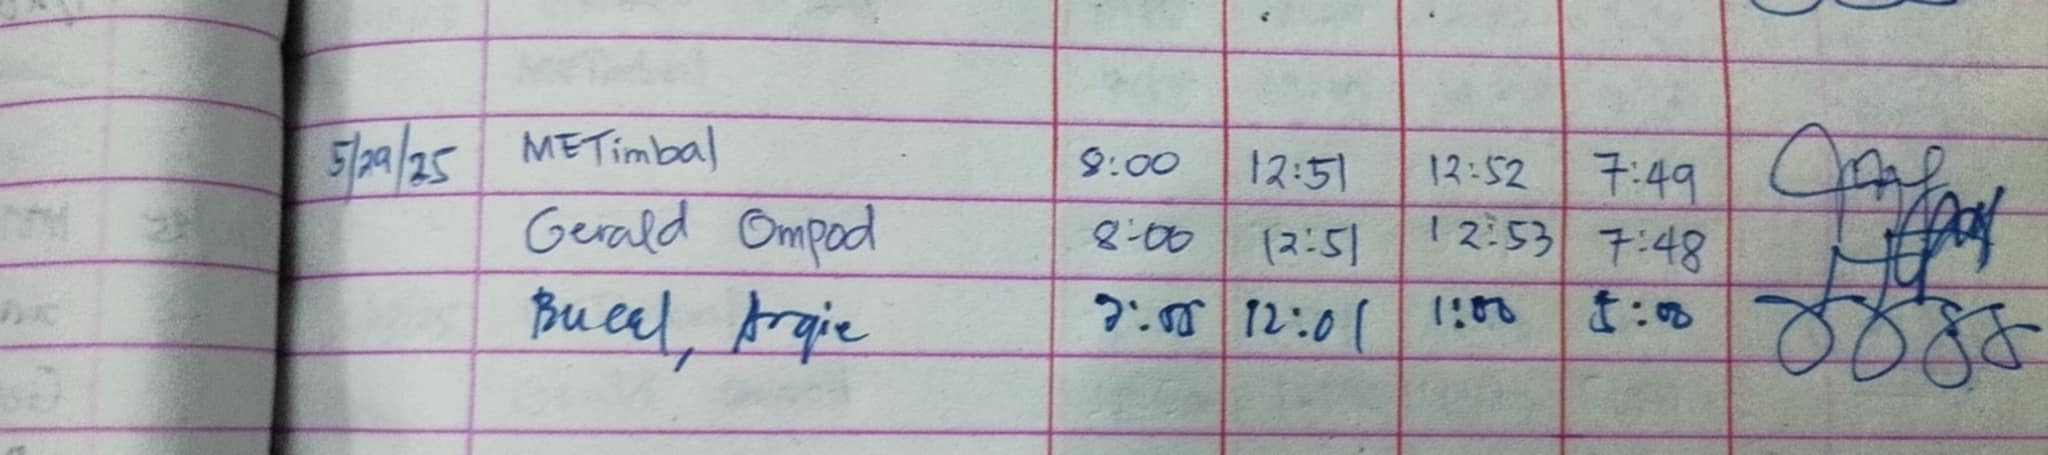 5/29/25 METimbal 8:00 12:51 12:52 7:49
Gerald Ompod 8:00 12:51 12:53 7:48
Bucal, Argie 12:01 1:00 5:00